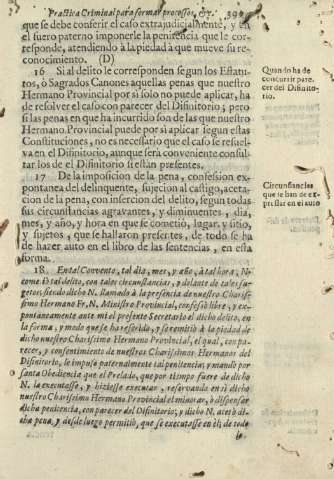 Practica Criminal para formar processos, &c. 39
que se debe conferir el caso extrajudicialmente, y en
el fuero paterno imponerle la penitencia que le cor-
responde, atendiendo à la piedad à que mueve su re-
conocimiento. (D)
16 Si al delito le corresponden segun los Estatu-
tos, ò Sagrados Canones aquellas penas que nuestro
Hermano Provincial por si solo no puede aplicar, ha
de resolver el caso con parecer del Disinitorio; pero
si las penas en que ha incurrido son de las que nuestro
Hermano Provincial puede por si aplicar segun estas
Constituciones, no es necesario que el caso se resuel-
va en el Disinitorio, aunque serà conveniente consul-
tar los de el Disinitorio si estàn presentes.
Quando ha de
concurrir pare-
cer del Disinito-
rio.
17 De la imposicion de la pena, confession ex-
pontanea del delinquente, sujecion al castigo, aceta-
cion de la pena, con insercion del delito, segun todas
sus circunstancias agravantes, y diminuentes, dia,
mes, y año, y hora en que se cometiò, lugar, y sitio,
y sujetos, que se hallaron presentes, de todo se ha
de hazer auto en el libro de las sentencias, en esta
forma.
Circunstancias
que se han de ex-
pressar en el auto
18 En tal Convento, tal dia, mes, y año, à tal hora, N.
come tiò tal delito, con tales circunstancias, y delante de tales su-
getos, siendo dicho N. llamado à la presencia de nuestro Charis-
simo Hermano Fr. N. Ministro Provincial, confessò libre, y ex-
pontaneamente ante mi el presente Secretario el dicho delito, en
la forma, y modo que se ha referido, y se remitiò à la piedad de
dicho nuestro Charissimo Hermano Provincial, el qual, con pa-
recer, y consentimiento de nuestros Charissimos Hermanos del
Disinitorio, le impuso paternalmente tal penitencia; y mandò por
santa Obediencia que el Prelado, que por tiempo fuere de dicho
N. la executasse, y hiziesse executar, reservando en si dicho
nuestro Charissimo Hermano Provincial el minorar, ò dispensar
dicha penitencia, con parecer del Disinitorio; y dicho N. acetò di-
cha pena, y desde luego permitiò, que se executasse en èl; de todo
lo